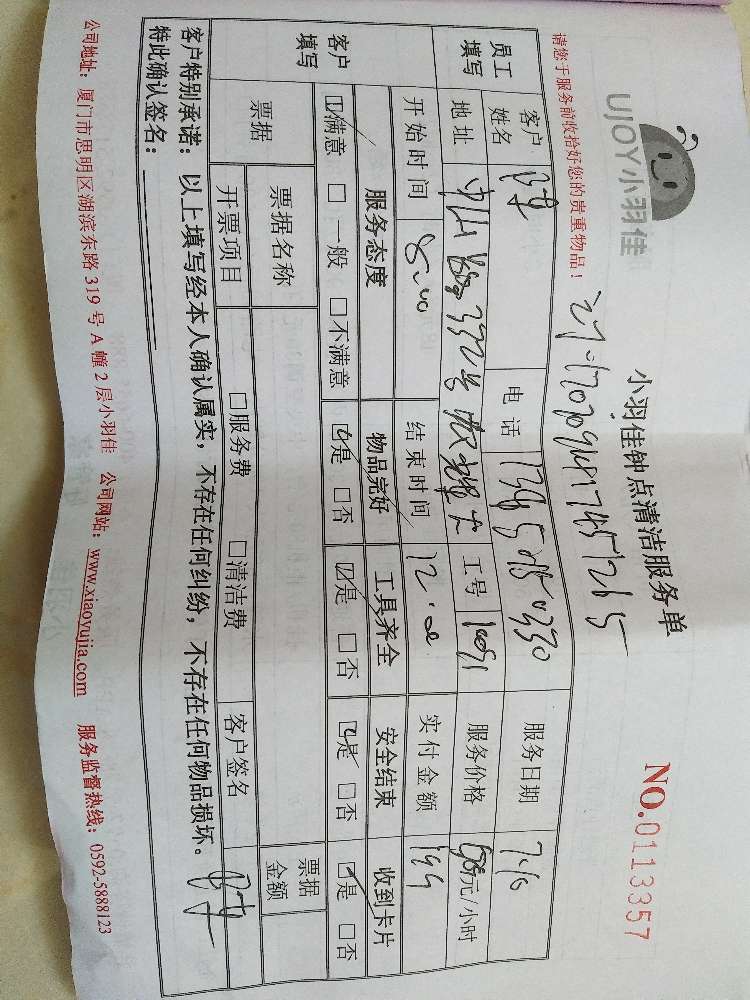 UJOY小羽佳
小羽佳钟点清洁服务单
NO.0113357
请您于服务前收拾好您的贵重物品！
员工填写
客户姓名
电话
服务日期 7.10
地址
工号
服务价格 元/小时
客户填写
开始时间 8:00
结束时间 12:00
实付金额 199
服务态度 物品完好 工具齐全 安全结束 收到卡片
☑满意 □一般 □不满意 ☑是 □否 ☑是 □否 ☑是 □否 ☑是 □否
票据
票据名称
票据金额
开票项目 □服务费 □清洁费 客户签名
客户特别承诺：以上填写经本人确认属实，不存在任何纠纷，不存在任何物品损坏。
特此确认签名：
公司地址：厦门市思明区湖滨东路319号A幢2层小羽佳 公司网站：www.xiaoyujia.com 服务监督热线：0592-5888123